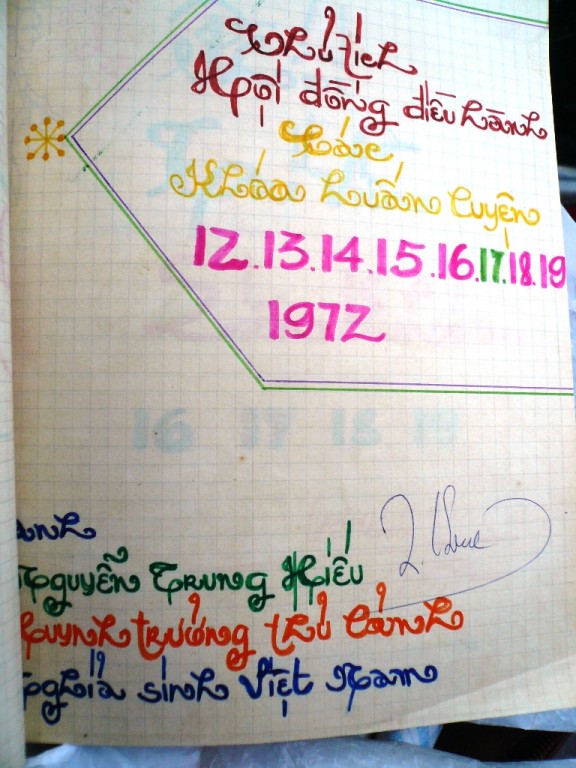 Chủ tích
Hội đồng điều hành
Các
Khóa huấn luyện
12.13.14.15.16.17.18.19
1972
16 17 18 19
anh
Nguyễn Trung Hiếu
Huynh trưởng thủ lãnh
Nghĩa sinh Việt Nam